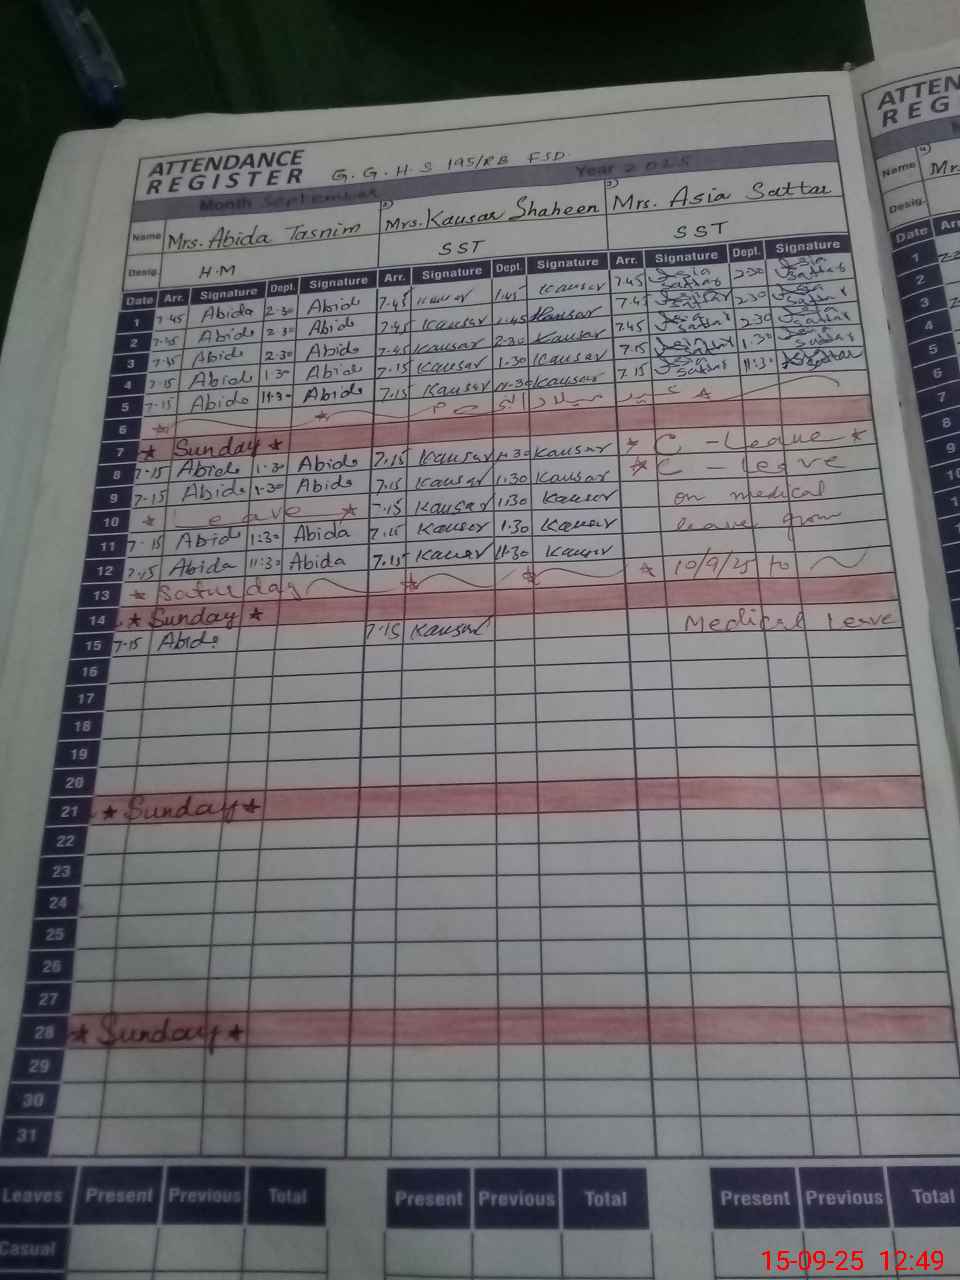 ATTENDANCE REGISTER G.G.H.S 195/RB FSD.
Month September Year 2025
Name Mrs. Abida Tasnim 2) Mrs. Kausar Shaheen 3) Mrs. Asia Sattar
Desig. H.M SST SST
Date Arr. Signature Dept. Signature Arr. Signature Dept. Signature Arr. Signature Dept. Signature
1 7-45 Abida 2-30 Abida 7-45 Kausar 1:45 Kausar 7.45 Asia Sattar 2:30 Asia Sattar
2 7-45 Abida 2-30 Abida 7.45 Kausar 1.45 Kausar 7.45 Asia Sattar 2.30 Asia Sattar
3 7-45 Abida 2-30 Abida 7.45 Kausar 2-30 Kausar 7.45 Asia Sattar 2-30 Asia Sattar
4 7-15 Abida 1-30 Abida 7:15 Kausar 1.30 Kausar 7.15 Asia Sattar 1.30 Asia Sattar
5 7-15 Abida 11-30 Abida 7.15 Kausar 11-30 Kausar 7.15 Asia Sattar 11:30 Asia Sattar
6 عید میلاد النبی
7 Sunday
8 7-15 Abida 1-30 Abida 7.15 Kausar 1.30 Kausar C-Leave
9 7-15 Abida 1-30 Abida 7.15 Kausar 1.30 Kausar C-leave
10 Leave 7.15 Kausar 1.30 Kausar on medical
11 7-15 Abida 1:30 Abida 7.15 Kausar 1.30 Kausar leave from
12 7-15 Abida 11:30 Abida 7.15 Kausar 11.30 Kausar 10/9/25 to
13 Saturday
14 Sunday
15 7-15 Abida 7-15 Kausar Medical leave
16
17
18
19
20
21 Sunday
22
23
24
25
26
27
28 Sunday
29
30
31
Leaves Present Previous Total Present Previous Total Present Previous Total
Casual
ATTEN
REG
4)
Name Mrs.
Desig.
Date Arr
1
2
3
4
5
6
7
8
9
10
1
15-09-25 12:49